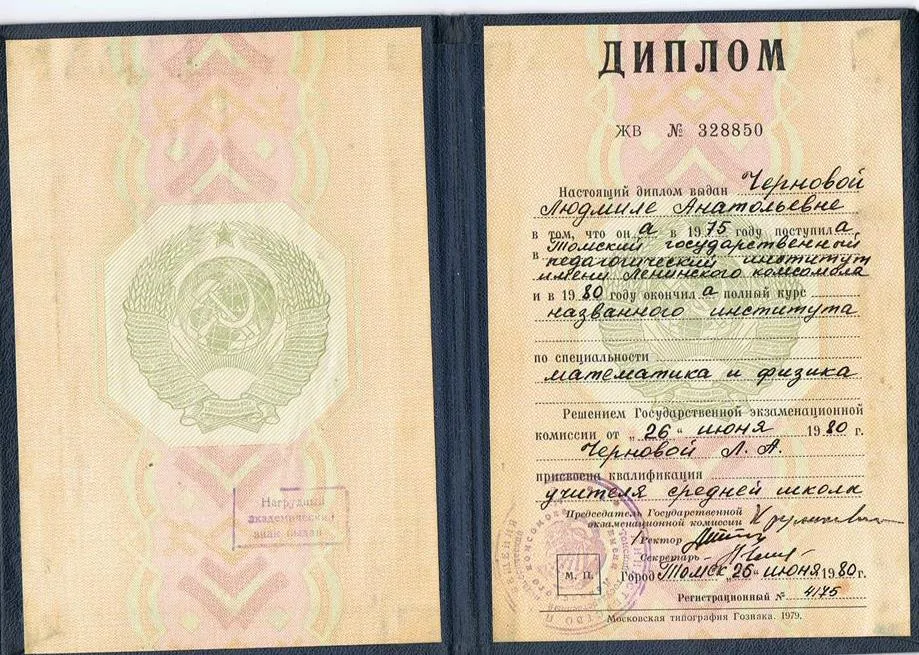 Нагрудный
академический
знак выдан
ДИПЛОМ
ЖВ № 328850
Настоящий диплом выдан Черновой
Людмиле Анатольевне
в том, что он а в 1975 году поступил а
в Томский государственный
педагогический институт
имени Ленинского комсомола
и в 1980 году окончил а полный курс
названного института
по специальности
математика и физика
Решением Государственной экзаменационной
комиссии от „26“ июня 1980 г.
Черновой Л. А.
присвоена квалификация
учителя средней школы
Председатель Государственной
экзаменационной комиссии
Ректор
Секретарь
М. П. Город Томск „26“ июня 1980 г.
Регистрационный № 4175
Московская типография Гознака. 1979.